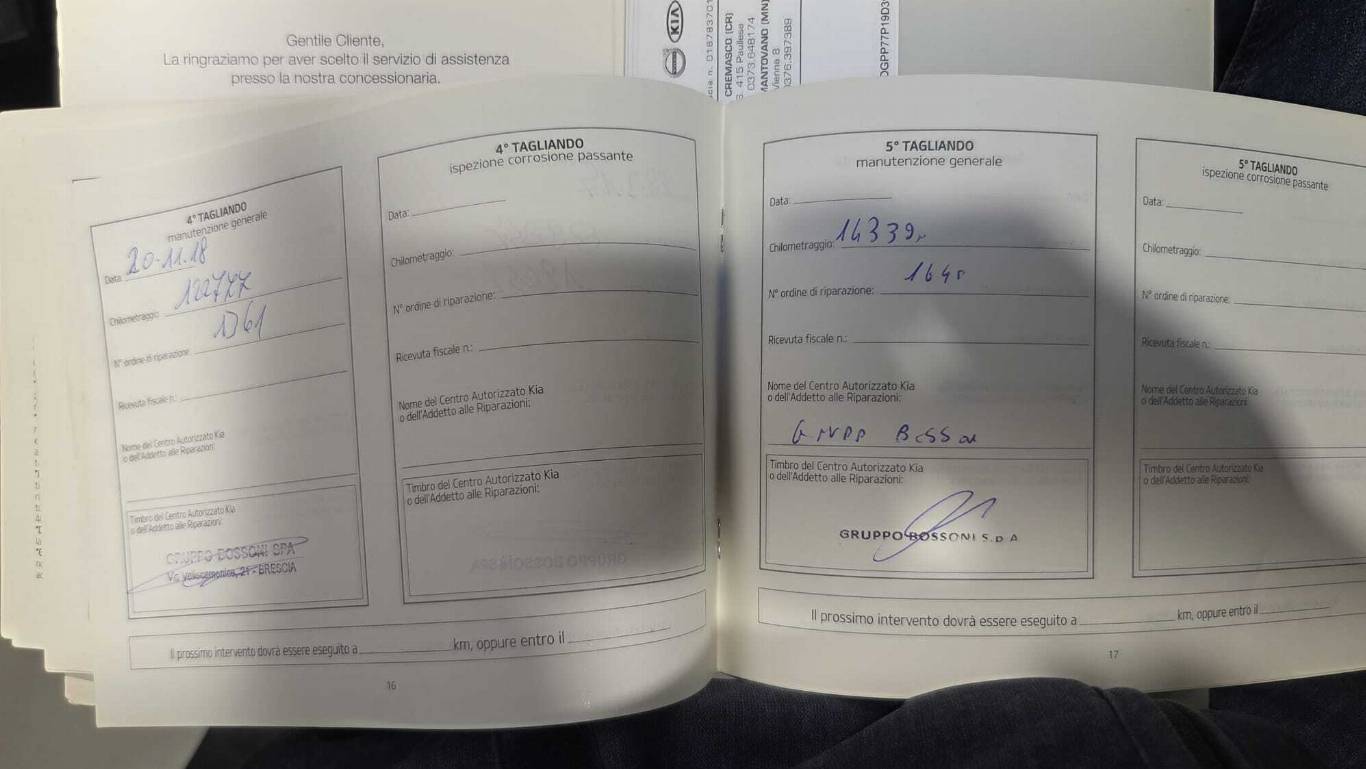 Gentile Cliente,
La ringraziamo per aver scelto il servizio di assistenza
presso la nostra concessionaria.
KIA
CREMASCO (CR)
S. 415 Paullese
0373.648174
MANTOVANO (MN)
Vienna 8
0376.397389
4° TAGLIANDO
manutenzione generale
Data: 20-11.18
Chilometraggio: 122777
N° ordine di riparazione: 1361
Ricevuta fiscale n.:
Nome del Centro Autorizzato Kia
o dell'Addetto alle Riparazioni:
Timbro del Centro Autorizzato Kia
o dell'Addetto alle Riparazioni:
GRUPPO BOSSONI SPA
Via Valcamonica, 21 - BRESCIA
4° TAGLIANDO
ispezione corrosione passante
Data:
Chilometraggio:
N° ordine di riparazione:
Ricevuta fiscale n.:
Nome del Centro Autorizzato Kia
o dell'Addetto alle Riparazioni:
Timbro del Centro Autorizzato Kia
o dell'Addetto alle Riparazioni:
Il prossimo intervento dovrà essere eseguito a km, oppure entro il
16
5° TAGLIANDO
manutenzione generale
Data:
Chilometraggio: 14339
N° ordine di riparazione:
Ricevuta fiscale n.:
Nome del Centro Autorizzato Kia
o dell'Addetto alle Riparazioni:
Timbro del Centro Autorizzato Kia
o dell'Addetto alle Riparazioni:
GRUPPO BOSSONI S.p.A
5° TAGLIANDO
ispezione corrosione passante
Data:
Chilometraggio:
N° ordine di riparazione:
Ricevuta fiscale n.:
Nome del Centro Autorizzato Kia
o dell'Addetto alle Riparazioni:
Timbro del Centro Autorizzato Kia
o dell'Addetto alle Riparazioni:
Il prossimo intervento dovrà essere eseguito a km, oppure entro il
17